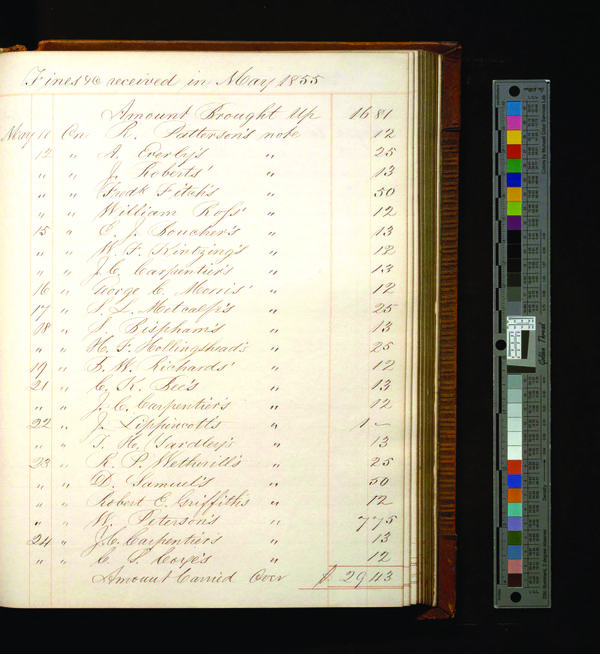 Fines &c received in May 1855
Amount Brought Up 16 81
May 11 On R. Patterson's note 12
12 " A. Everly's " 25
" " J. Roberts' " 13
" " Fredk Fitch's " 50
" " William Ross' " 12
15 " C. J. Boucher's " 13
" " W. F. Kintzing's " 12
" " J. C. Carpentier's " 13
16 " George C. Morris' " 12
17 " S. L. Metcalfe's " 25
18 " Bispham's " 13
" " H. F. Hollingshead's " 25
19 " W. Richards' " 12
21 " C. K. Fee's " 13
" " J. C. Carpentier's " 12
22 " J. Lippincott's " 1 –
" " T. H. Yardley's " 13
23 " R. P. Wetherill's " 25
" " D. Samuel's " 50
" " Robert E. Griffith's " 12
" " W. Peterson's " 7 75
24 " J. C. Carpentier's " 13
" " C. S. Coxe's " 12
Amount Carried Over $ 29 43